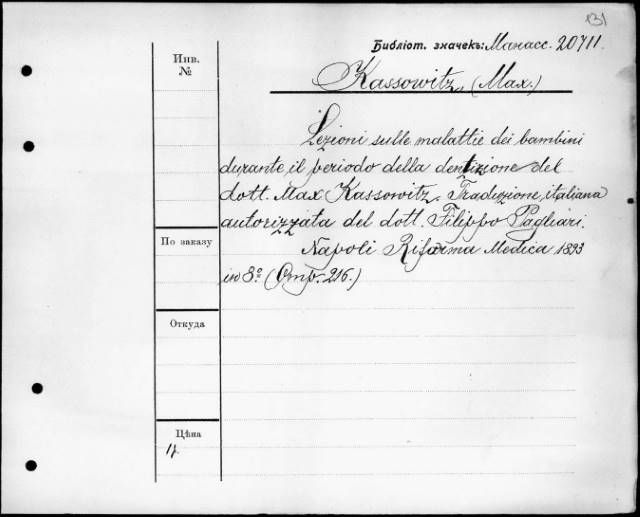 131
Библіот. значекъ: Манасс. 20711.
Инв.
№
Kassowitz, (Max.)
Lezioni sulle malattie dei bambini
durante il periodo della dentizione del
dott. Max Kassowitz. Traduzione italiana
autorizzata del dott. Filippo Pagliari.
По заказу
Napoli Riforma Medica 1893
in 8.º (Стр. 216.)
Откуда
Цѣна